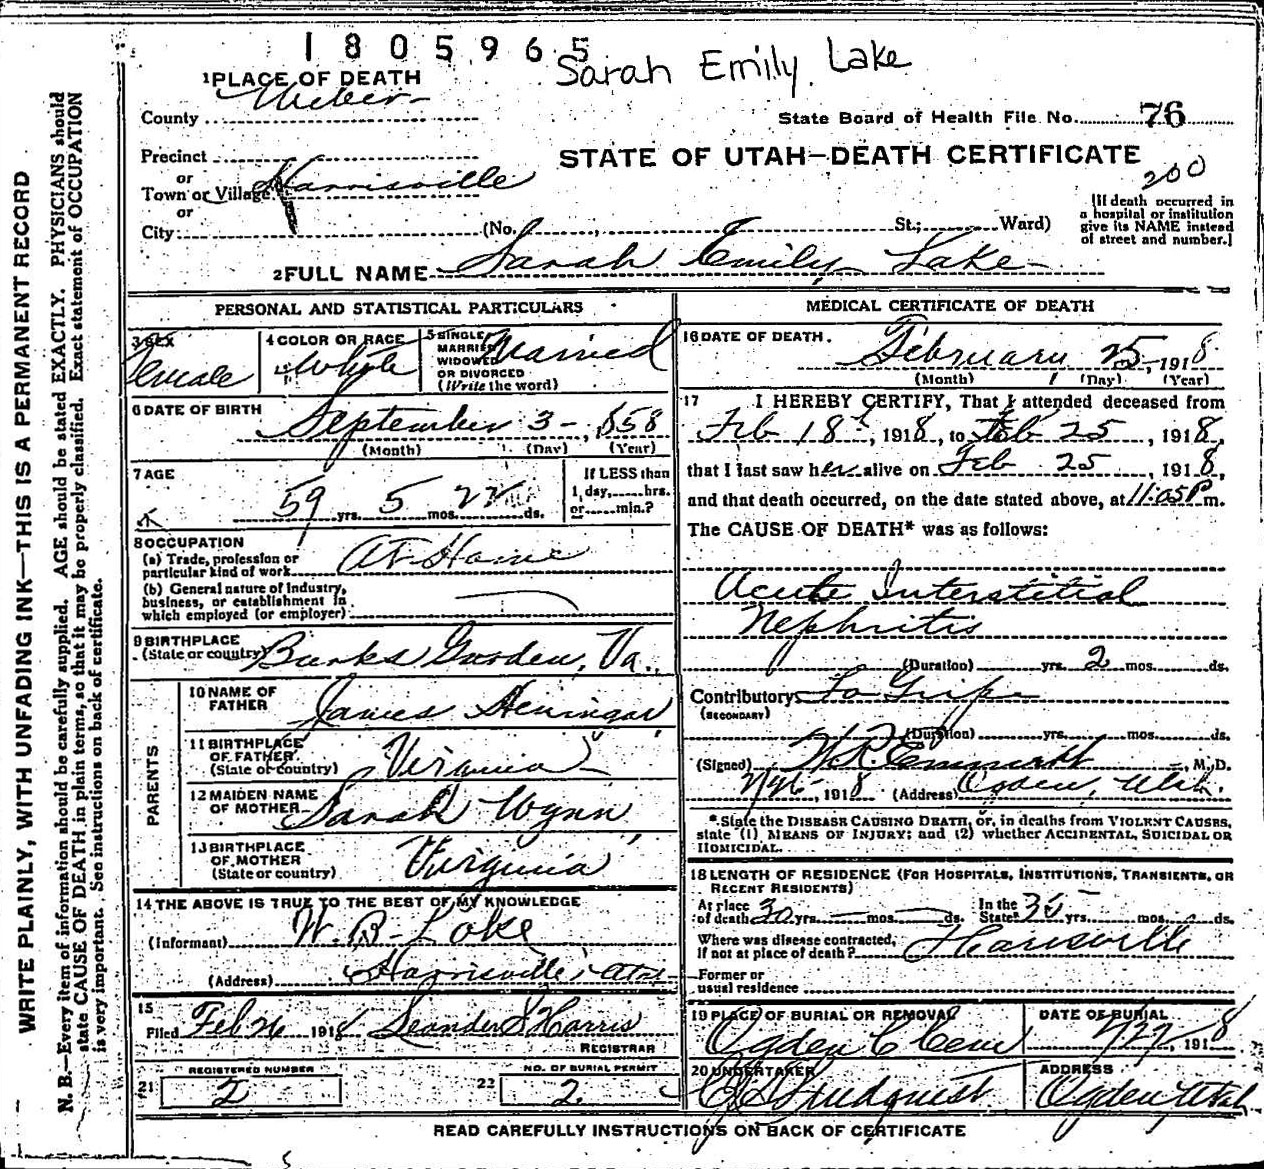 1805965
Sarah Emily Lake
1 PLACE OF DEATH
County Weber
State Board of Health File No. 76
Precinct
or
Town or Village Harrisville
or
City
STATE OF UTAH—DEATH CERTIFICATE
200
(No. , St.; Ward)
[If death occurred in
a hospital or institution
give its NAME instead
of street and number.]
2 FULL NAME Sarah Emily Lake
PERSONAL AND STATISTICAL PARTICULARS
3 SEX
Female
4 COLOR OR RACE
White
5 SINGLE
MARRIED
WIDOWED
OR DIVORCED
(Write the word)
Married
6 DATE OF BIRTH
September 3 - , 1858
(Month) (Day) (Year)
7 AGE
59 yrs. 5 mos. 22 ds.
If LESS than
1 day,......hrs.
or......min.?
8 OCCUPATION
(a) Trade, profession or
particular kind of work At Home
(b) General nature of industry,
business, or establishment in
which employed (or employer)
9 BIRTHPLACE
(State or country) Burks Garden, Va.
PARENTS
10 NAME OF
FATHER James Heningar
11 BIRTHPLACE
OF FATHER
(State or country) Virginia
12 MAIDEN NAME
OF MOTHER Sarah Wynn
13 BIRTHPLACE
OF MOTHER
(State or country) Virginia
14 THE ABOVE IS TRUE TO THE BEST OF MY KNOWLEDGE
(Informant) W. B. Lake
(Address) Harrisville Utah
15
Filed Feb 26 1918 Leander S Harris
REGISTRAR
21 REGISTERED NUMBER
2
22 NO. OF BURIAL PERMIT
2
MEDICAL CERTIFICATE OF DEATH
16 DATE OF DEATH.
February 25, 1918
(Month) (Day) (Year)
17 I HEREBY CERTIFY, That I attended deceased from
Feb 18th, 1918, to Feb 25, 1918,
that I last saw her alive on Feb 25, 1918,
and that death occurred, on the date stated above, at 11:05 P m.
The CAUSE OF DEATH* was as follows:
Acute Interstitial
Nephritis
(Duration) yrs. 2 mos. ds.
Contributory La Gripe
(SECONDARY)
(Duration) yrs. mos. ds.
(Signed) W.R. Emmett, M.D.
2/26, 1918 (Address) Ogden, Utah.
*State the DISEASE CAUSING DEATH, or, in deaths from VIOLENT CAUSES,
state (1) MEANS OF INJURY; and (2) whether ACCIDENTAL, SUICIDAL OR
HOMICIDAL.
18 LENGTH OF RESIDENCE (FOR HOSPITALS, INSTITUTIONS, TRANSIENTS, OR
RECENT RESIDENTS)
At place
of death 30 yrs. mos. ds.
In the
State 35 yrs. mos. ds.
Where was disease contracted,
If not at place of death? Harisville
Former or
usual residence
19 PLACE OF BURIAL OR REMOVAL
Ogden Cem
DATE OF BURIAL
2/27, 1918
20 UNDERTAKER
Lindquist
ADDRESS
Ogden Utah
READ CAREFULLY INSTRUCTIONS ON BACK OF CERTIFICATE
WRITE PLAINLY, WITH UNFADING INK—THIS IS A PERMANENT RECORD
N. B.—Every item of information should be carefully supplied. AGE should be stated EXACTLY. PHYSICIANS should
state CAUSE OF DEATH in plain terms, so that it may be properly classified. Exact statement of OCCUPATION
is very important. See instructions on back of certificate.